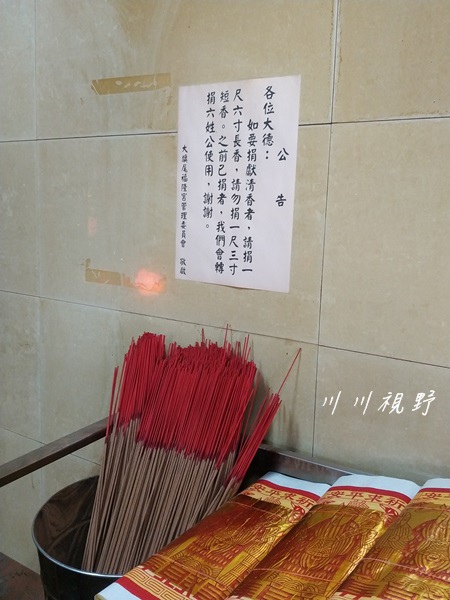 公告
各位大德：
如要捐獻清香者，請捐一
尺六寸長香，請勿捐一尺三寸
短香。之前已捐者，我們會轉
捐六姓公使用，謝謝。
大牆尾福隆宮管理委員會 敬啟
川川視野
祈求平安